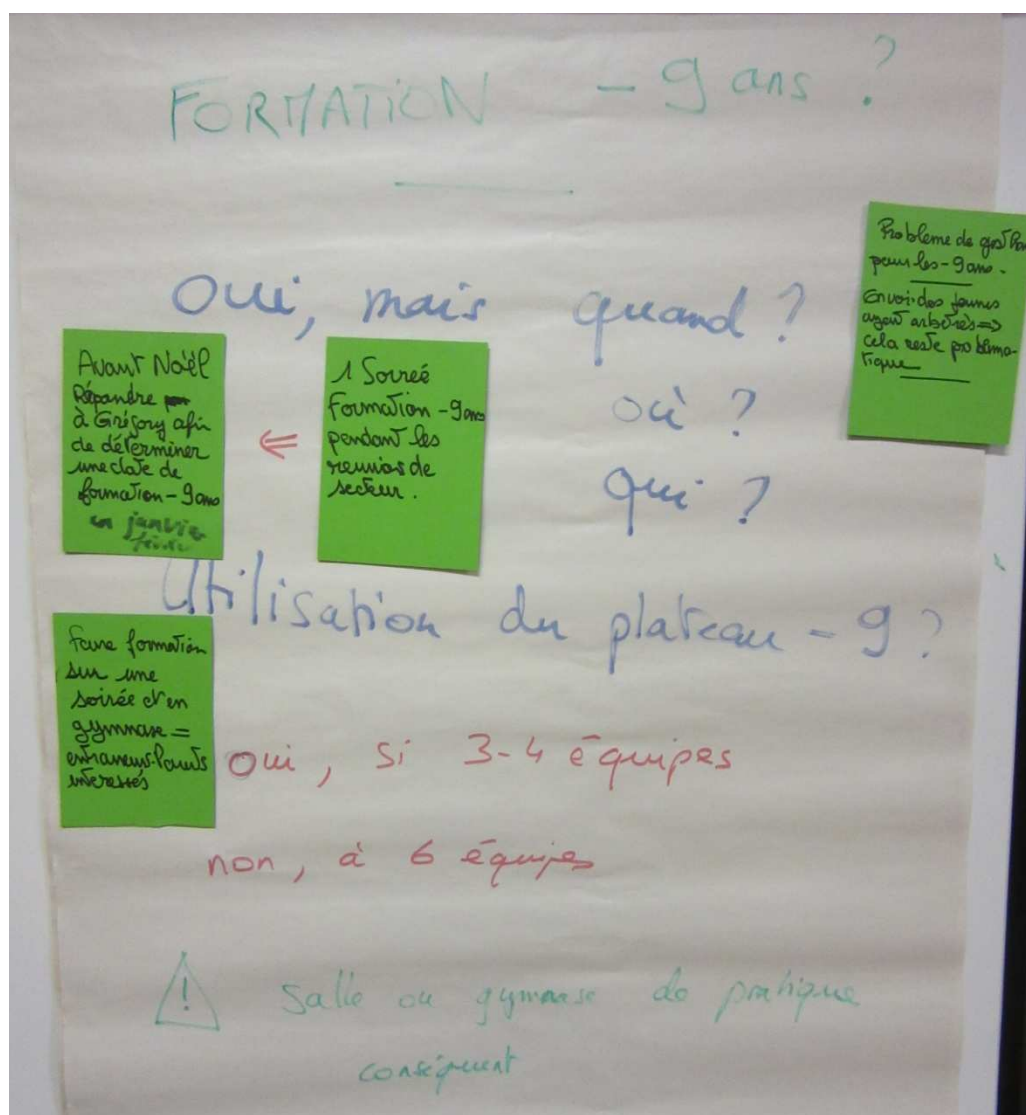 FORMATION - 9 ans ?
Oui, mais quand ?
où ?
qui ?
Problème de gestion
pour les - 9 ans.
Envoi des jeunes
ayant arbitrés =>
cela reste problèma-
tique
Avant Noël
Répondre
à Grégory afin
de déterminer
une date de
formation - 9 ans
en janvier
⇐
1 Soireé
Formation - 9 ans
pendant les
reunios de
secteur.
Utilisation du plateau - 9 ?
Faire formation
sur une
soirée et en
gymnase =
intéressés
oui, si 3-4 équipes
non, à 6 équipes
! Salle ou gymnase de pratique
conséquent